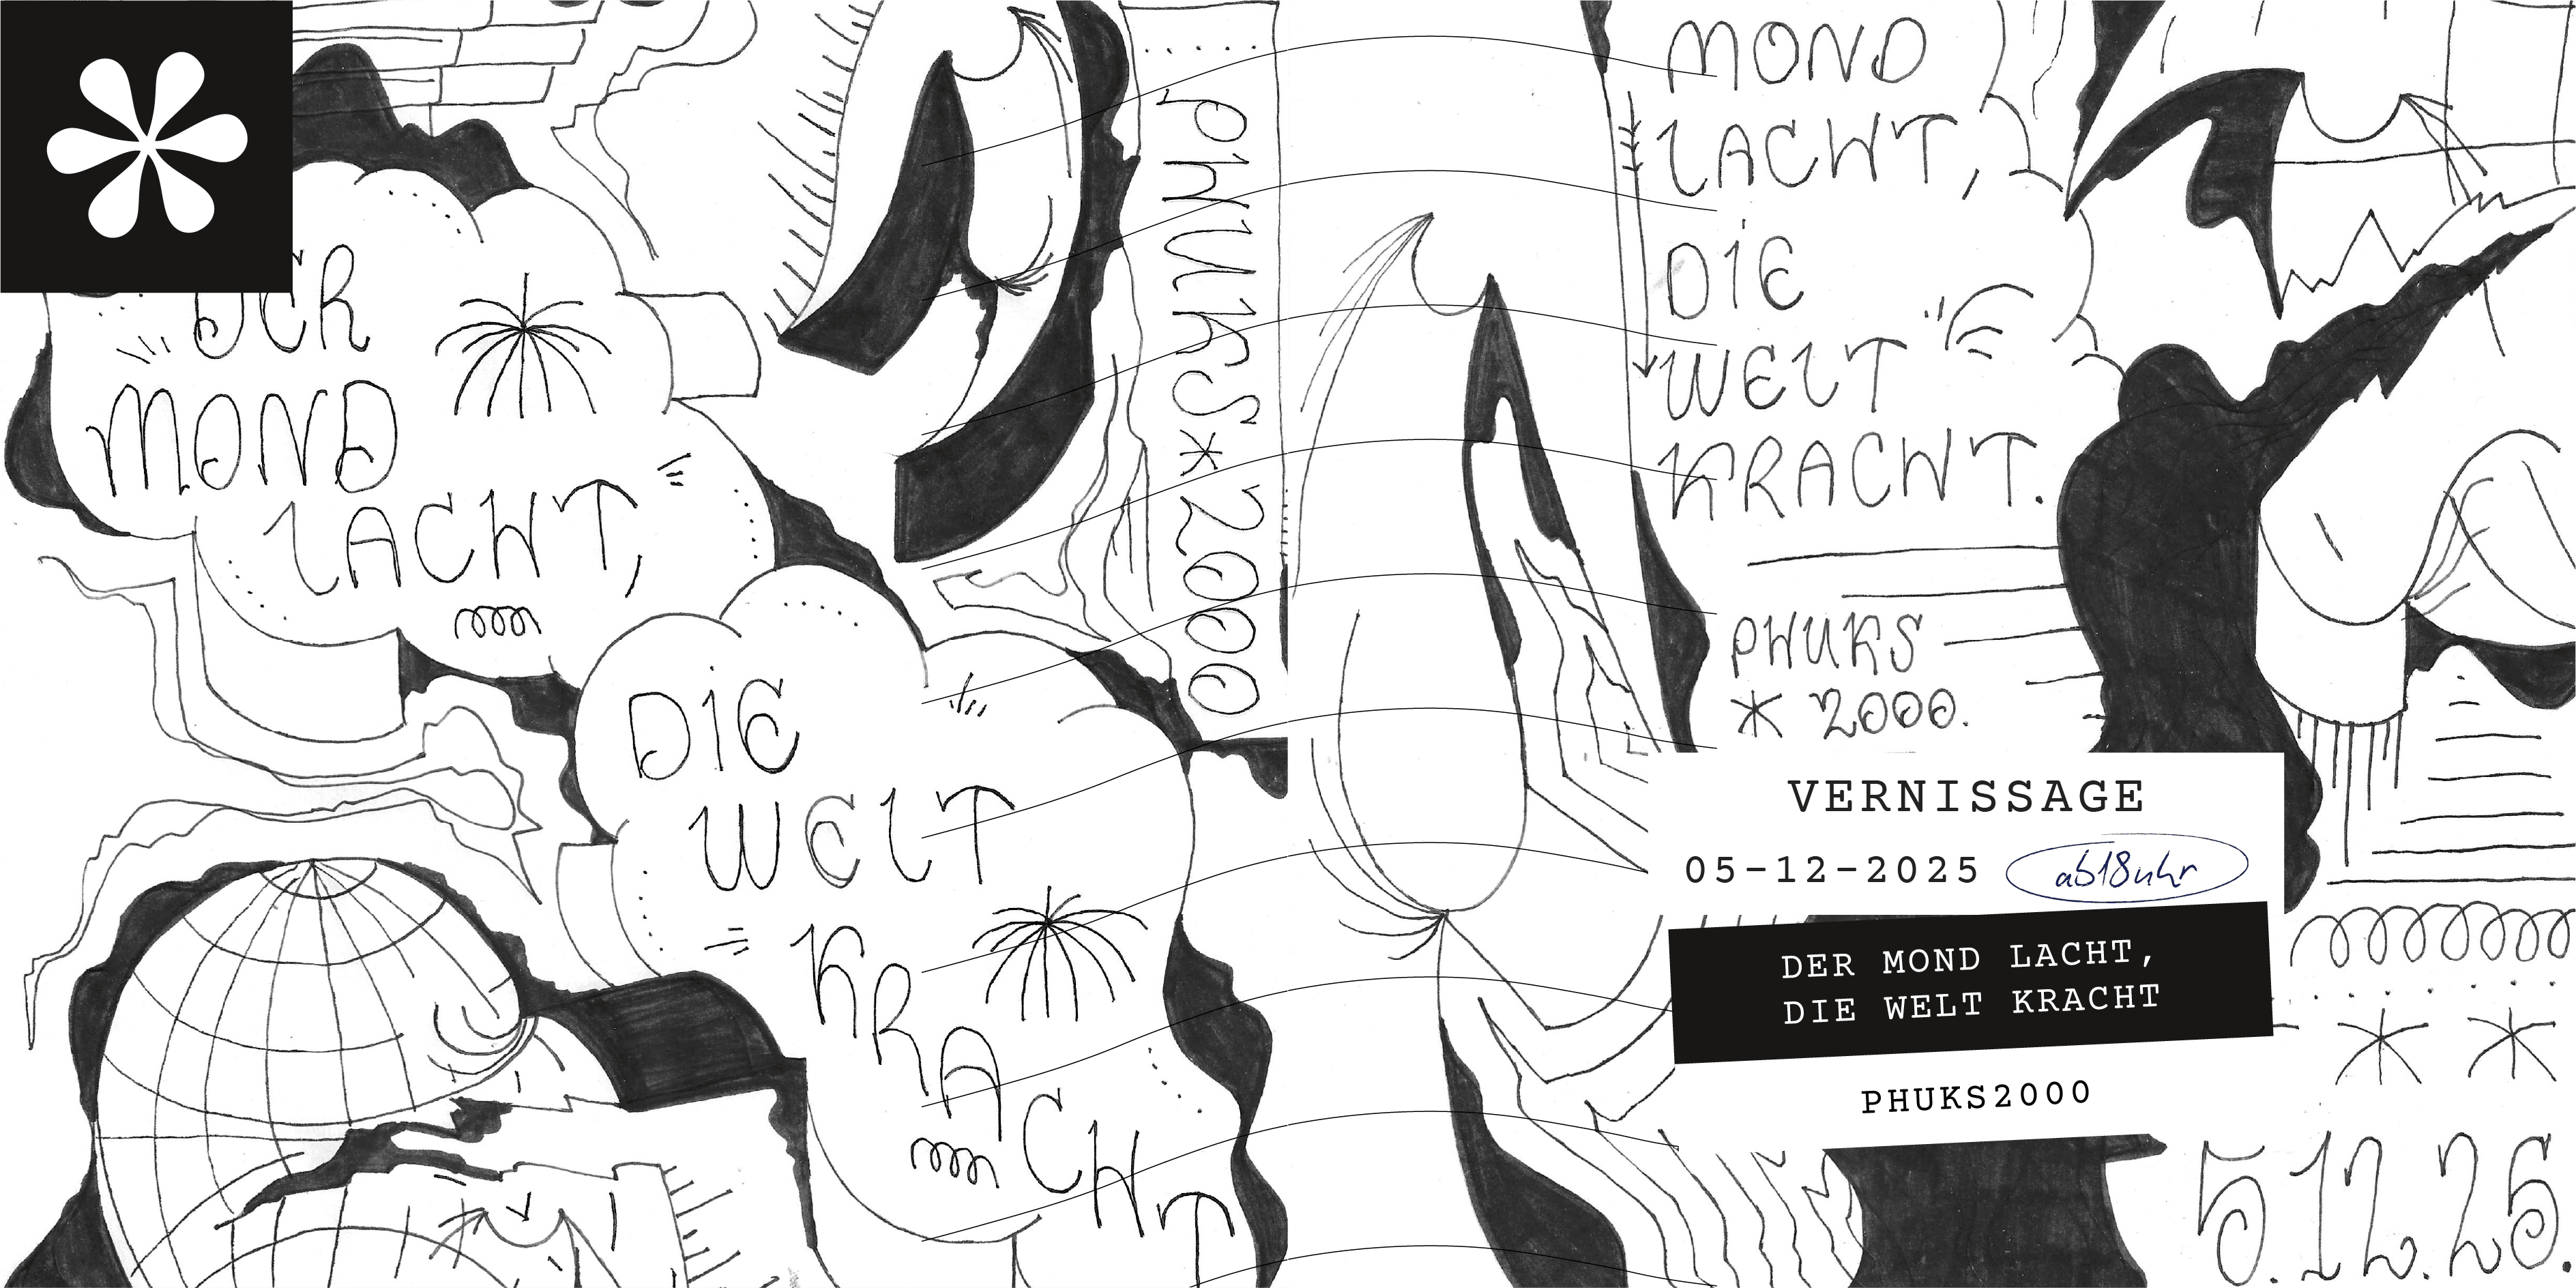 DER
MOND
LACHT,
DIE
WELT
KRACHT
PHUKS*2000
MOND
LACHT,
DIE
WELT
KRACHT.
PHUKS
* 2000.
VERNISSAGE
05-12-2025 ab 18 uhr
DER MOND LACHT,
DIE WELT KRACHT
PHUKS2000
5.12.25.